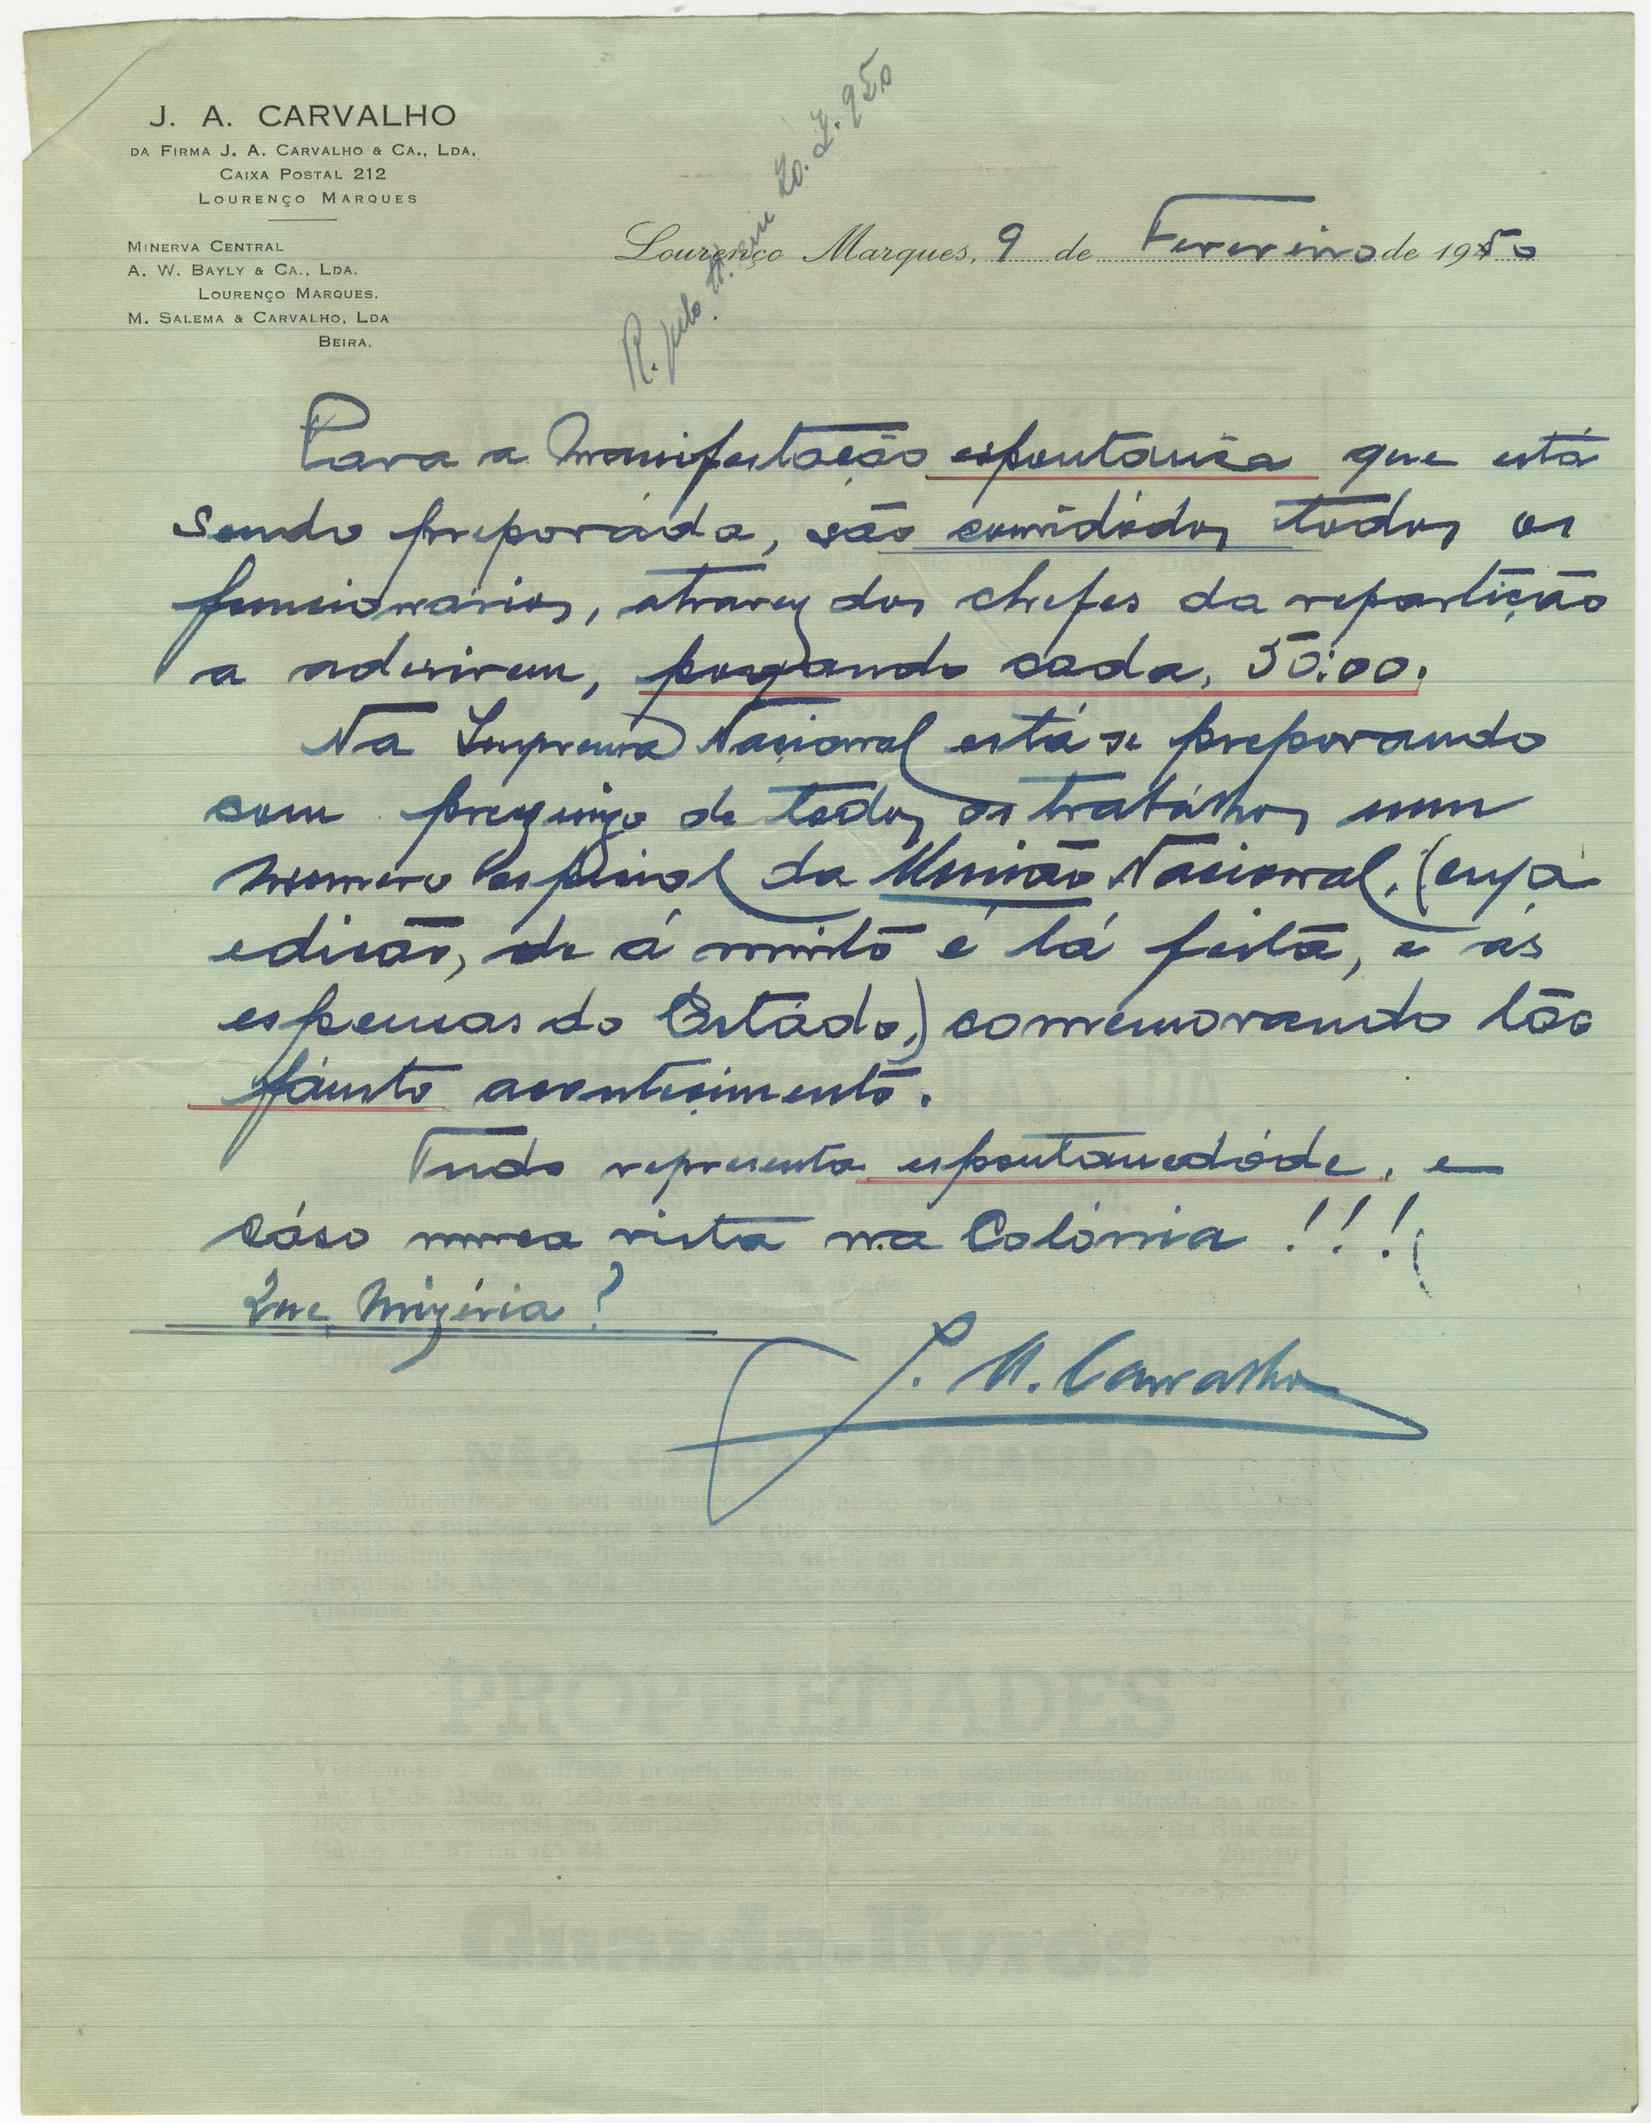 J. A. CARVALHO
DA FIRMA J. A. CARVALHO & CA., LDA.
CAIXA POSTAL 212
LOURENÇO MARQUES
MINERVA CENTRAL
A. W. BAYLY & CA., LDA.
LOURENÇO MARQUES.
M. SALEMA & CARVALHO, LDA
BEIRA.
R. pelo em 20.2.950
Lourenço Marques, 9 de Fevereiro de 1950
Para a Manifestação espontanêa que está
sendo preporáda, são convidádos todos os
funcionários, atravez dos chefes da repartição
a aderirem, pagando cada, 50:00.
Na Imprensa Nacional está se preporando
com prezuizo de todos os trabálhos num
numero especial da União Nacional, (cuja
edicão, de á muito é lá feita, e ás
espensas do Estádo,) comemorando tão
fáusto acontecimento.
Tudo representa espontanedáde, e
cáso nunca vista na Colónia !!!
Que Mizéria?
J. A. Carvalho
NÃO
PROPRIEDADES
Guarda-livros